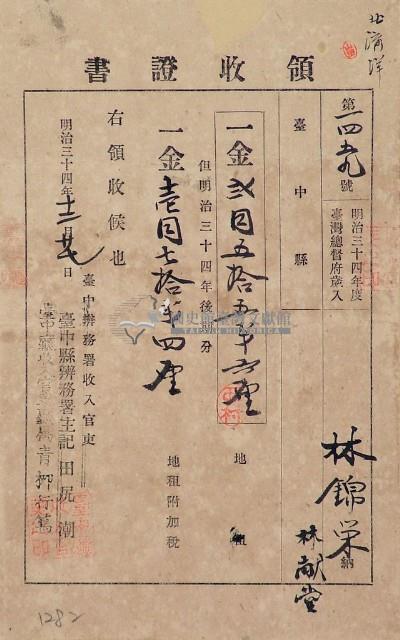 北溝洋
領收證書
第一四五九號
明治三十四年度
臺灣總督府歲入
臺中縣
林錦荣 納
林献堂
一金 弍円五拾 六厘 地租
但明治三十四年後期分
一金 壱円七拾 四厘 地租附加稅
右領收候也
明治三十四年十二月廿七日
臺中辨務署收入官吏
臺中縣辨務署主記 田尻潮
青柳行篤
國史館臺灣文獻館
TAIWAN HISTORICA
1282